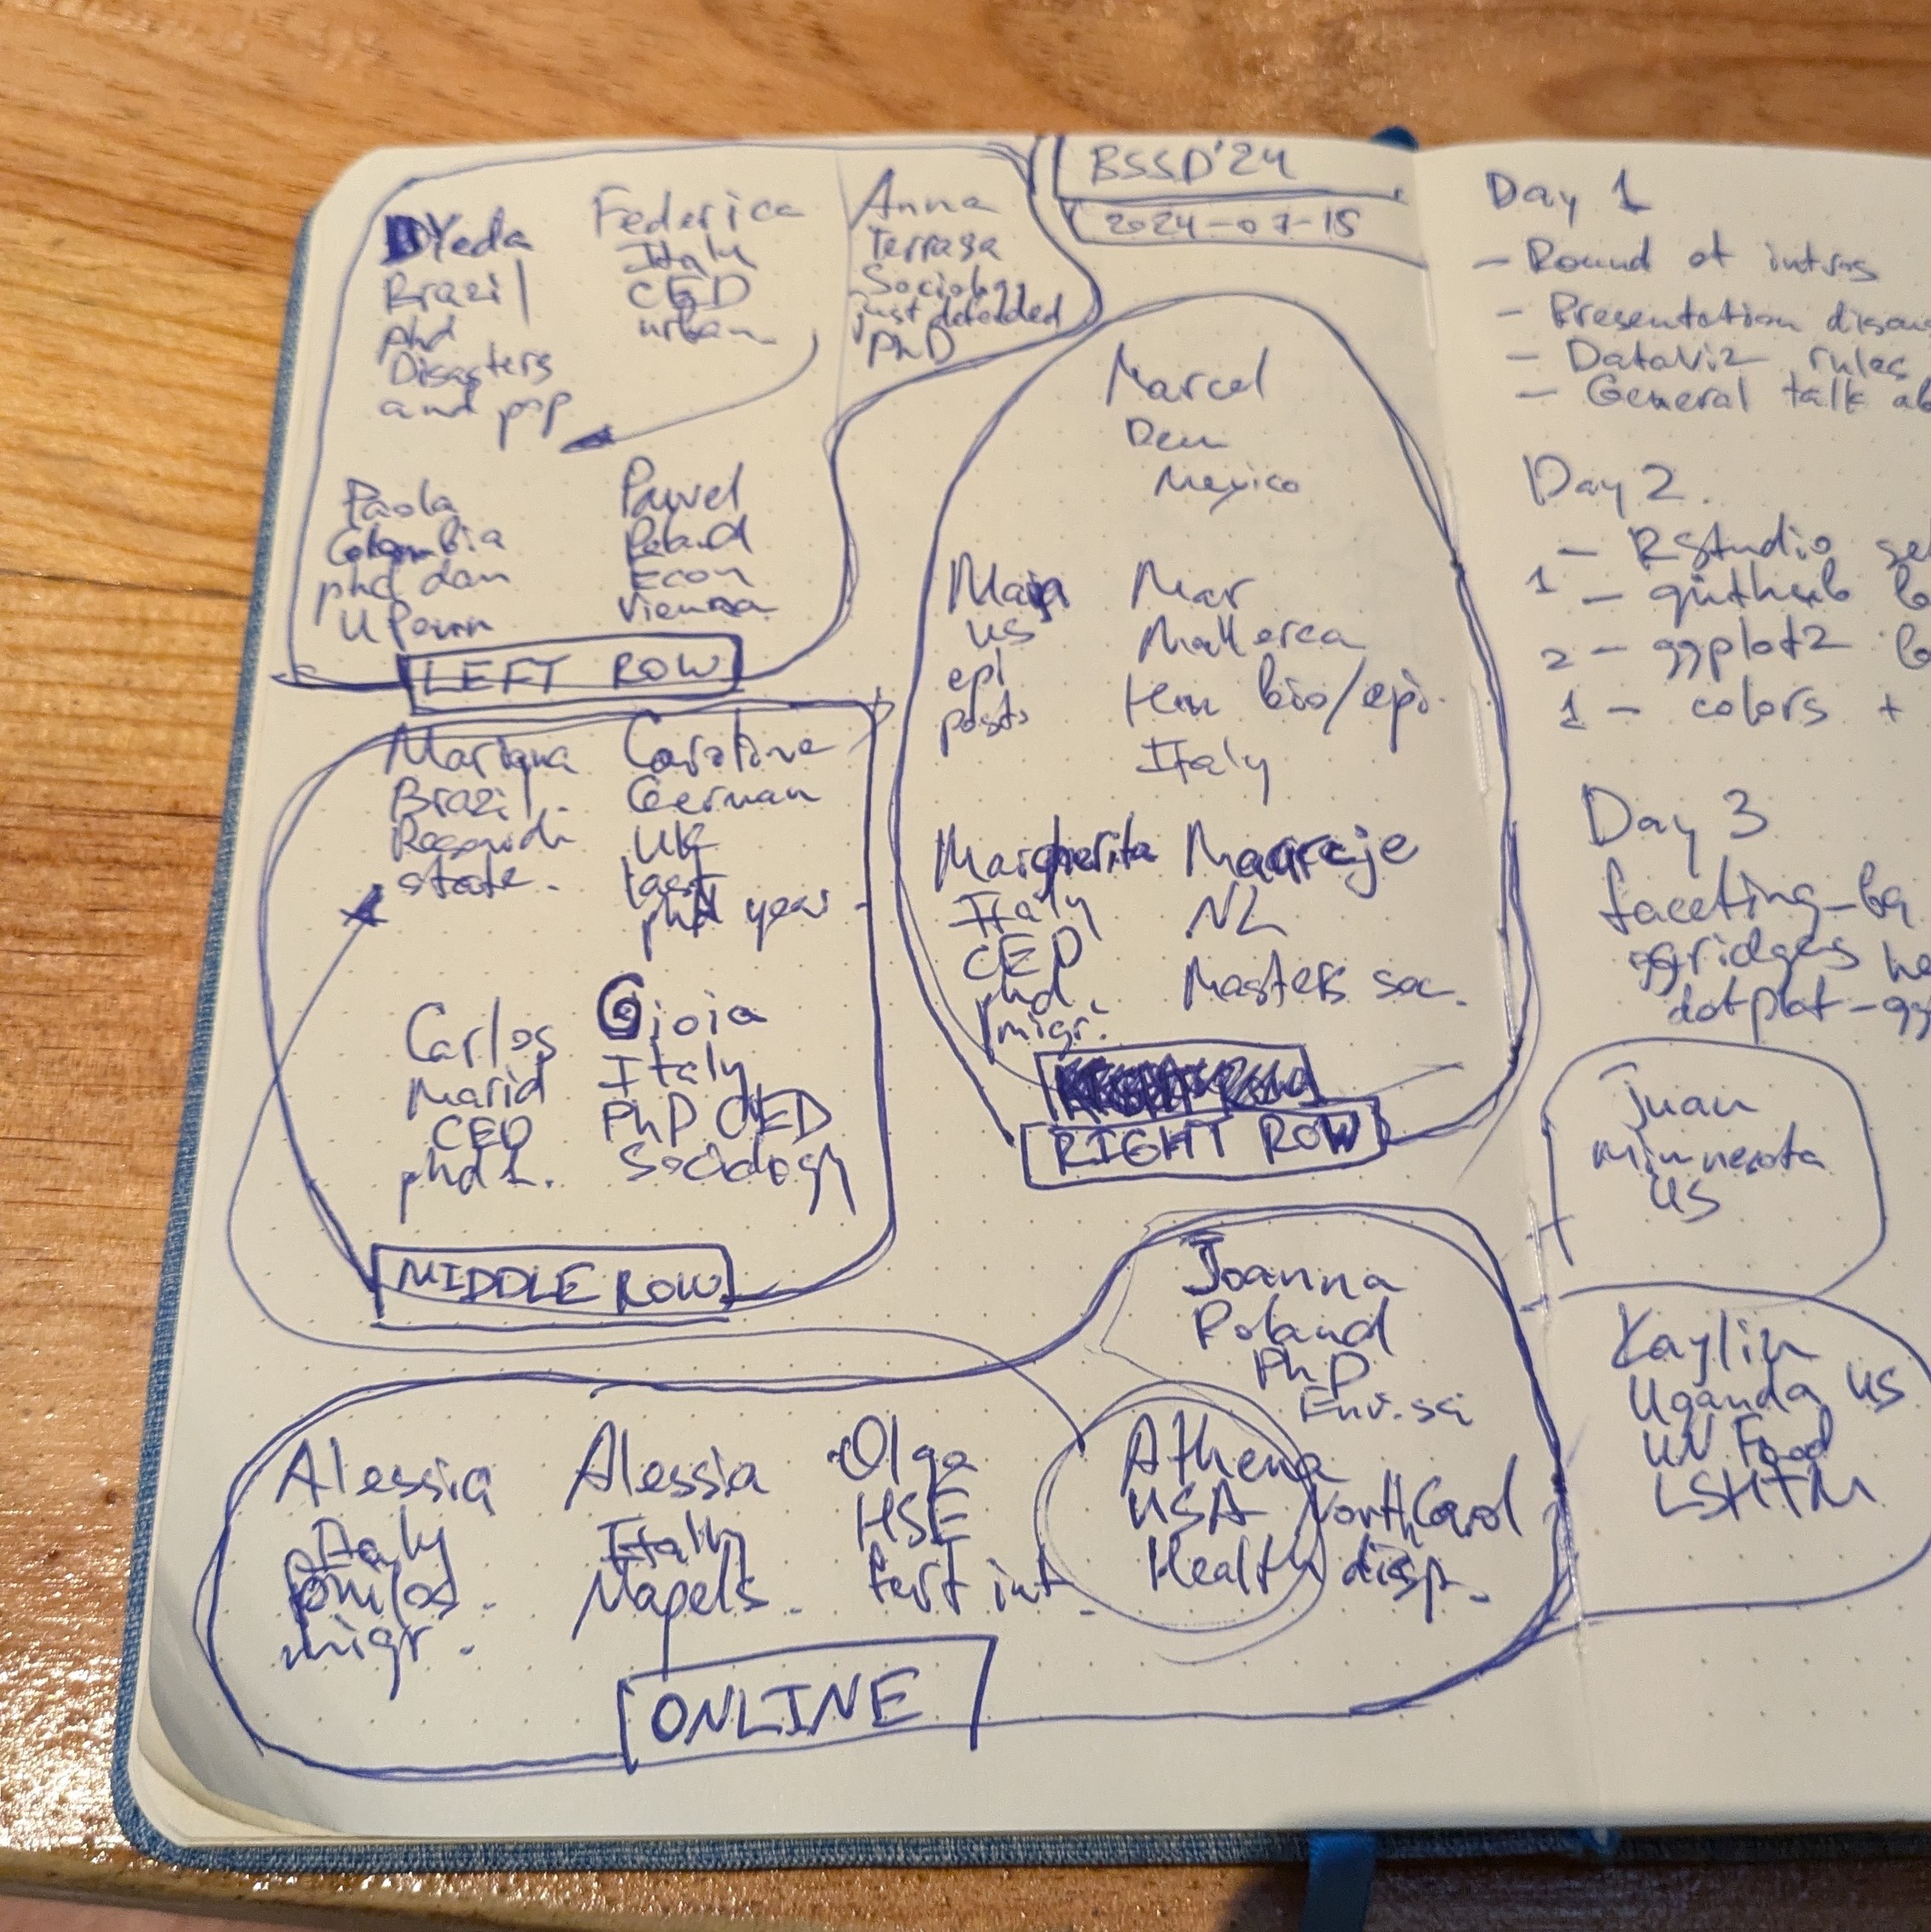 BSSD'24
2024-07-15
Yeda
Brazil
phd
Disasters
and pop
Federica
Italy
CED
urban
Anna
Terrasa
Sociology
just defended
PhD
Paola
Colombia
phd dem
UPenn
Pawel
Poland
Econ
Vienna
LEFT ROW
Mariana
Brazil.
state.
Caroline
German
UK
last
phd year
Carlos
Marid
CED
phd 1.
Gioia
Italy
PhD CED
Sociology
MIDDLE ROW
Marcel
Dem
Mexico
US
epi
Mar
Mallorca
bio/epi.
Italy
Margherita
Italy
CED
phd
migr.
NL
Masters soc.
RIGHT ROW
Joanna
Poland
PhD
Env.sci
Alessia
Italy
philos.
migr.
Alessia
Italy
Olga
HSE
fert int.
Athena
USA North Carol
Health disp.
ONLINE
Day 1
- Round of intros
- Presentation
- DataViz rules
- General talk
Day 2.
- RStudio
1 - github
2 - ggplot2
1 - colors +
Day 3
faceting
ggridges
dotplot
Juan
Minnesota
US
Kaylin
Uganda US
UN Food
LSHTM